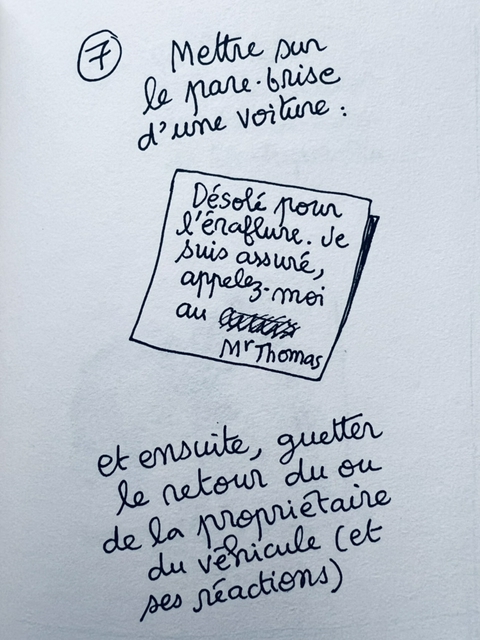 7 Mettre sur
le pare-brise
d'une voiture :
Désolé pour
l'éraflure. Je
suis assuré,
appelez-moi
au
Mr Thomas
et ensuite, guetter
le retour du ou
de la propriétaire
du véhicule (et
ses réactions)